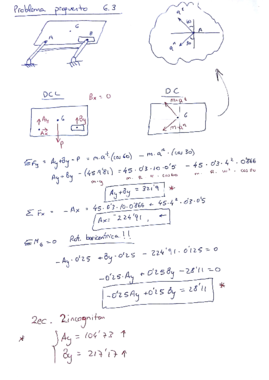 Problema propuesto 6.3
A
B
G
m·aⁿ
A
DCL
Bx = 0
DC
Ay
By
G
P
m·aᵗ
G
m·aⁿ
ΣFy = Ay + By - P = m·aᵗ (cos 60) - m·aⁿ·(cos 30)
Ay + By - (45·9'81) = 45·0'3·10·0'5 - 45·0'3·4²·0'866
Ay + By = 321'9 *
ΣFx = -Ax = 45·0'3·10·0'866 + 45·4²·0'3·0'5
Ax = -224'91
ΣMG = 0 Rot. baricéntrica !!
-Ay·0'25 + By·0'25 - 224'91·0'125 = 0
-0'25·Ay + 0'25 By - 28'11 = 0
-0'25 Ay + 0'25 By = 28'11 *
2ec. 2incognitas
* Ay = 104'73 ↑
By = 217'17 ↑